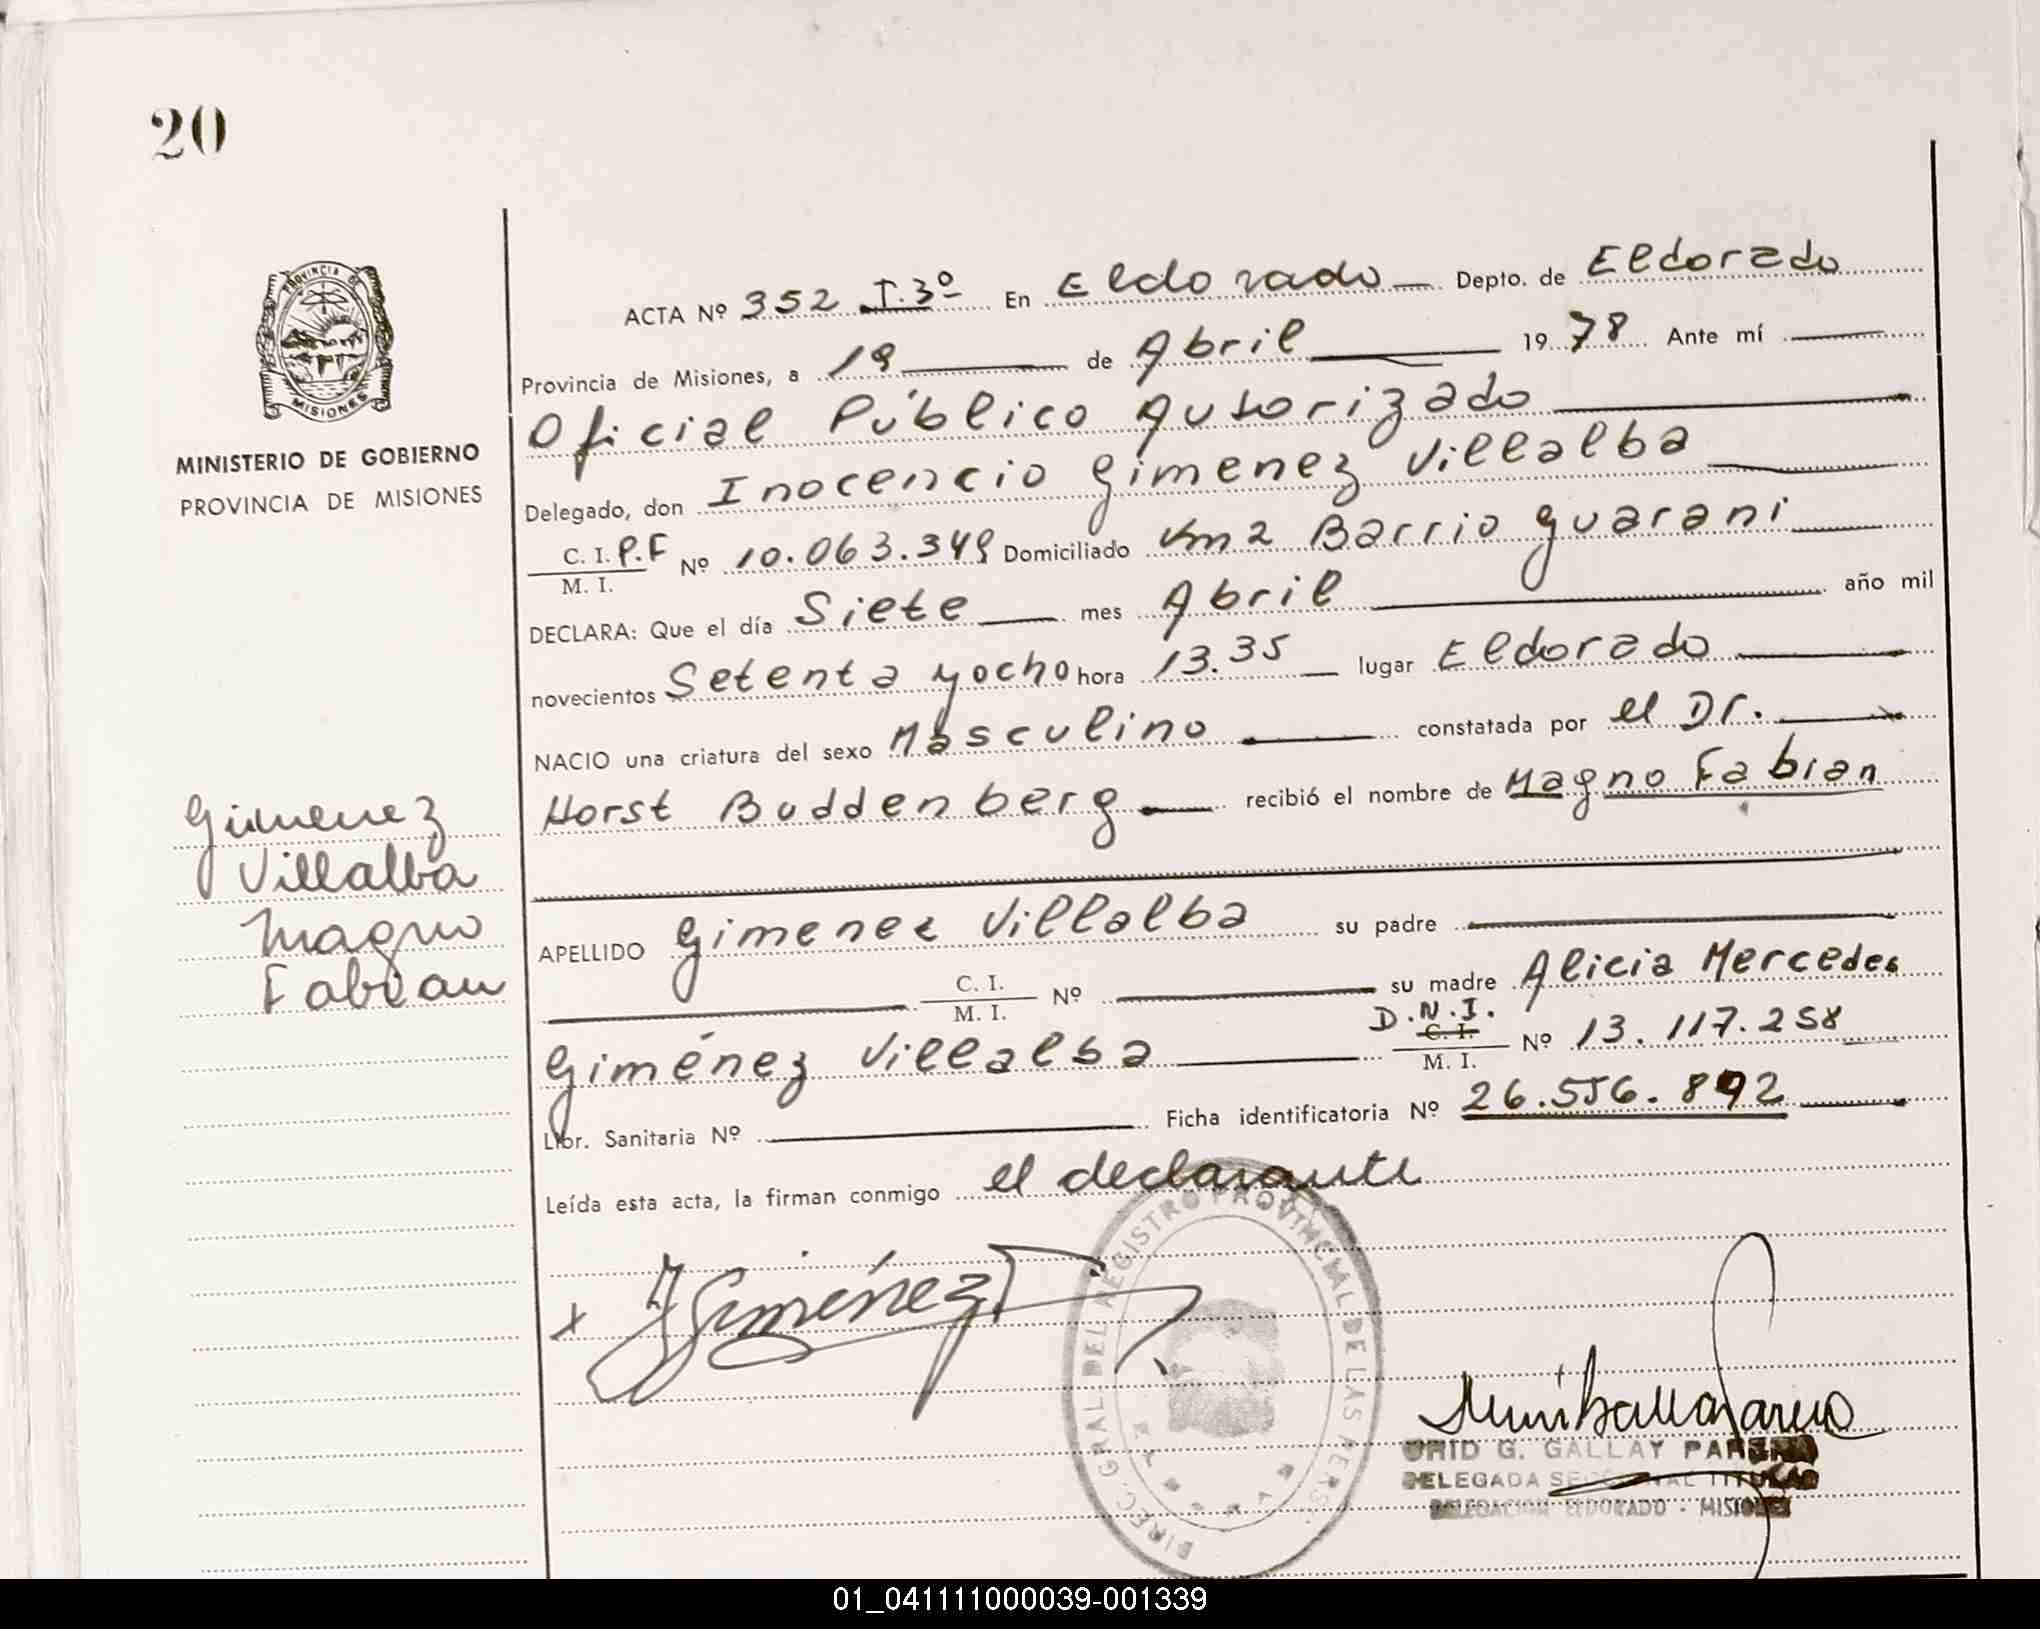 20
PROVINCIA DE
MISIONES
MINISTERIO DE GOBIERNO
PROVINCIA DE MISIONES
ACTA Nº 352 T.3º En Eldorado Depto. de Eldorado
Provincia de Misiones, a 19 de Abril 1978 Ante mí
Oficial Público Autorizado
Delegado, don Inocencio Gimenez Villalba
C. I. P.F Nº 10.063.349 Domiciliado Km 2 Barrio Guarani
M. I.
DECLARA: Que el día Siete mes Abril año mil
novecientos Setenta y ocho hora 13.35 lugar Eldorado
NACIO una criatura del sexo Masculino constatada por el Dr.
Horst Buddenberg recibió el nombre de Magno Fabian
Gimenez
Villalba
Magno
Fabian
APELLIDO Gimenez Villalba su padre
C. I. Nº su madre Alicia Mercedes
M. I.
Giménez Villalba D.N.I. C. I. Nº 13.117.258
M. I.
Libr. Sanitaria Nº Ficha identificatoria Nº 26.556.892
Leída esta acta, la firman conmigo el declarante
x Giménez
DIREC. GRAL DEL REGISTRO PROVINCIAL DE LAS PERS.
G. GALLAY
DELEGADA SECCIONAL TITULAR
DELEGACION ELDORADO - MISIONES
01_041111000039-001339